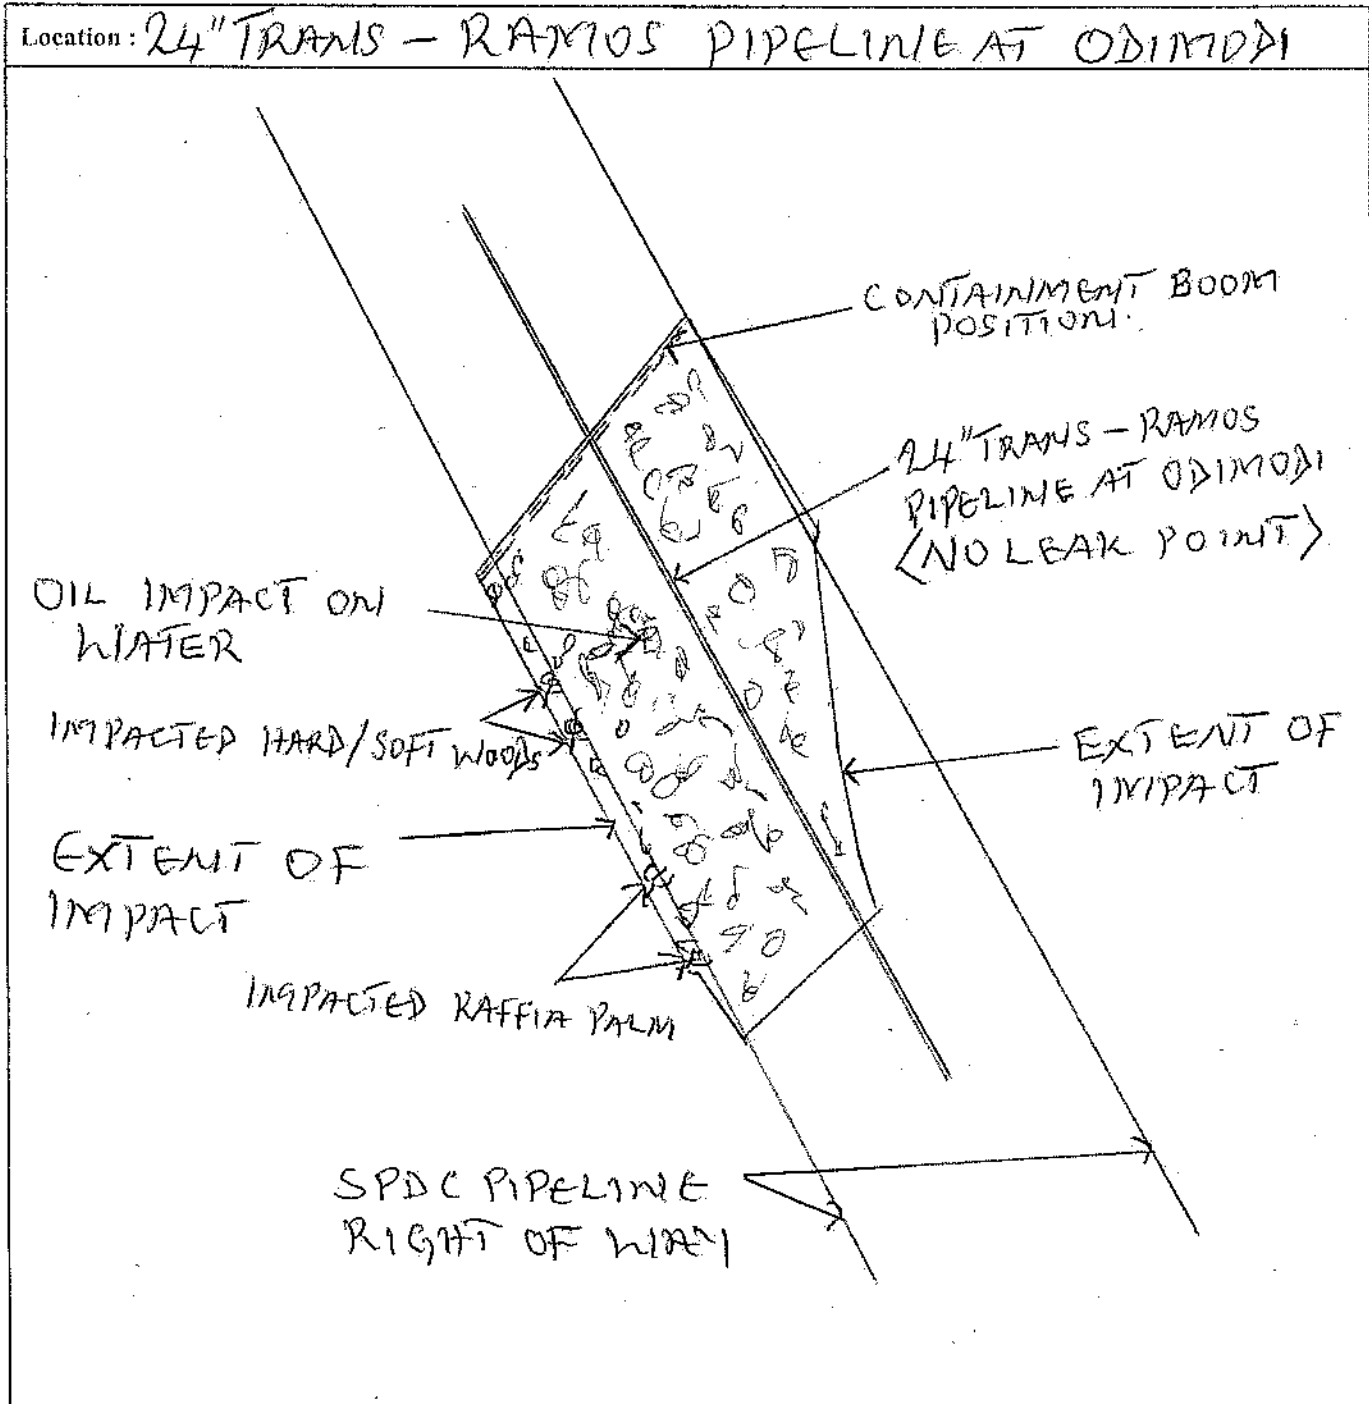 Location : 24" TRANS - RAMOS PIPELINE AT ODIMODI
CONTAINMENT BOOM
POSITION.
24" TRANS - RAMOS
PIPELINE AT ODIMODI
<NO LEAK POINT>
OIL IMPACT ON
WATER
IMPACTED HARD/SOFT WOODS
EXTENT OF
IMPACT
EXTENT OF
IMPACT
IMPACTED RAFFIA PALM
SPDC PIPELINE
RIGHT OF WAY